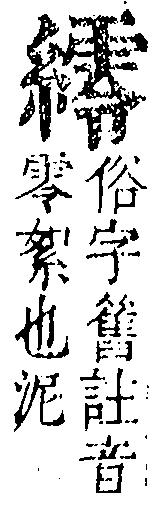 俗字舊註音
零絮也泥